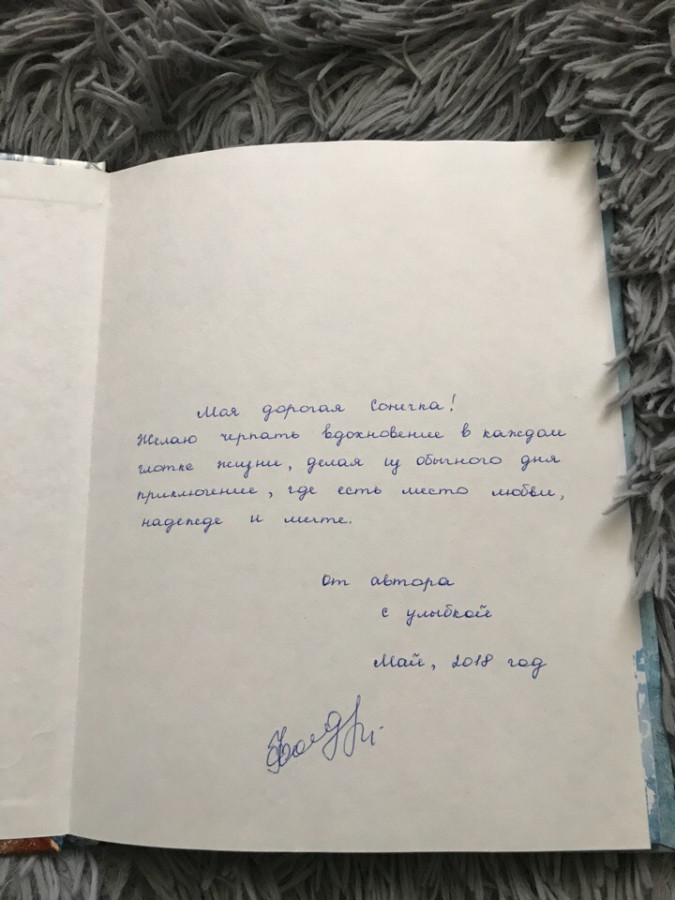 Моя дорогая Сонечка!
Желаю черпать вдохновение в каждом
глотке жизни, делая из обычного дня
приключение, где есть место любви,
надежде и мечте.
От автора
с улыбкой
Май, 2018 год